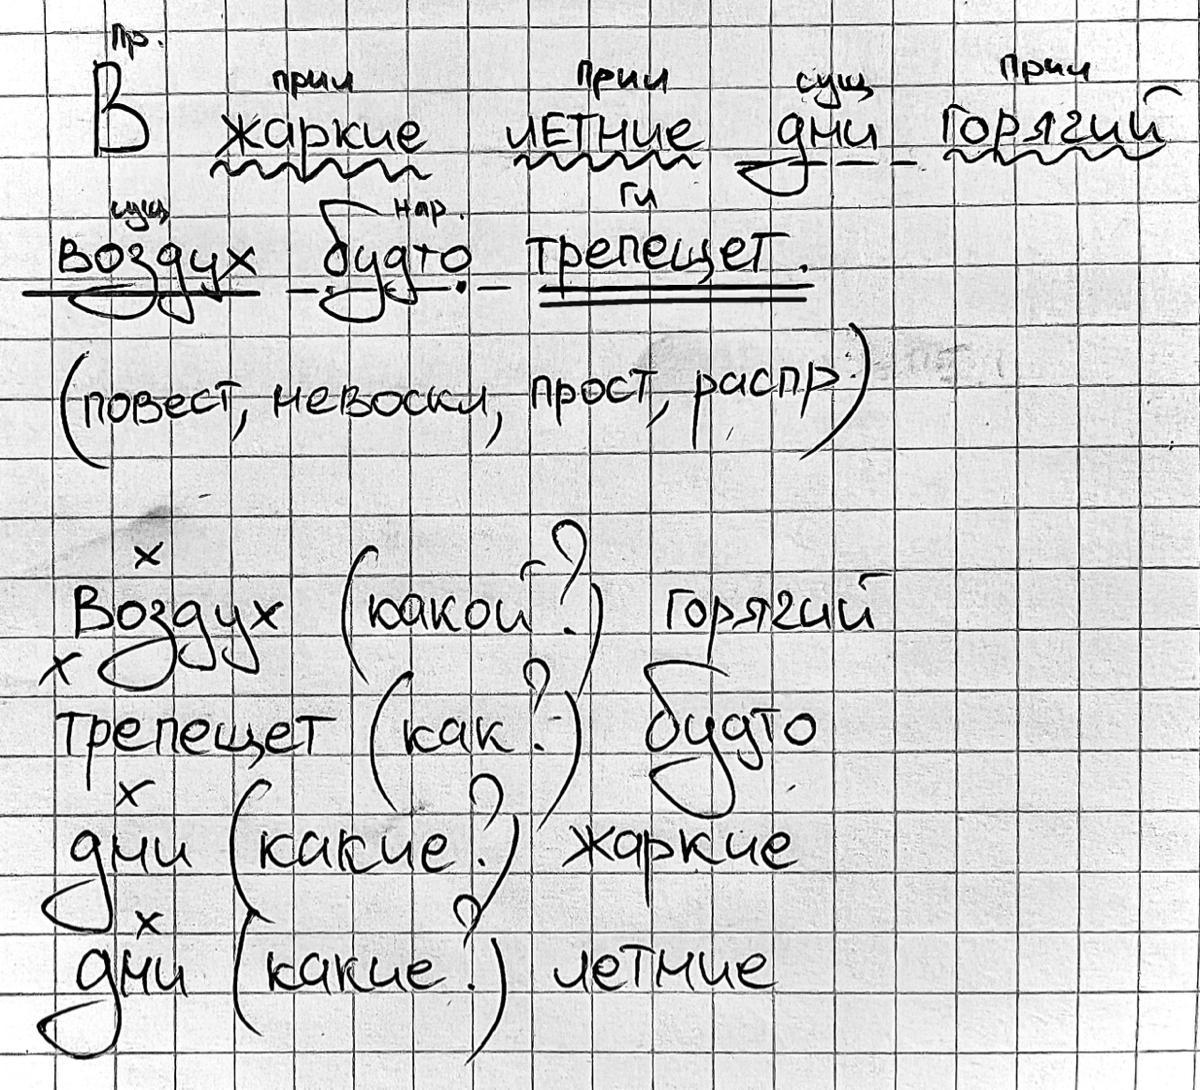 пр. прил прил сущ прил
В жаркие летние дни горячий
сущ нар. гл
воздух будто трепещет.
(повест, невоскл, прост, распр.)
х
Воздух (какой?) горячий
х
трепещет (как?) будто
х
дни (какие?) жаркие
х
дни (какие?) летние